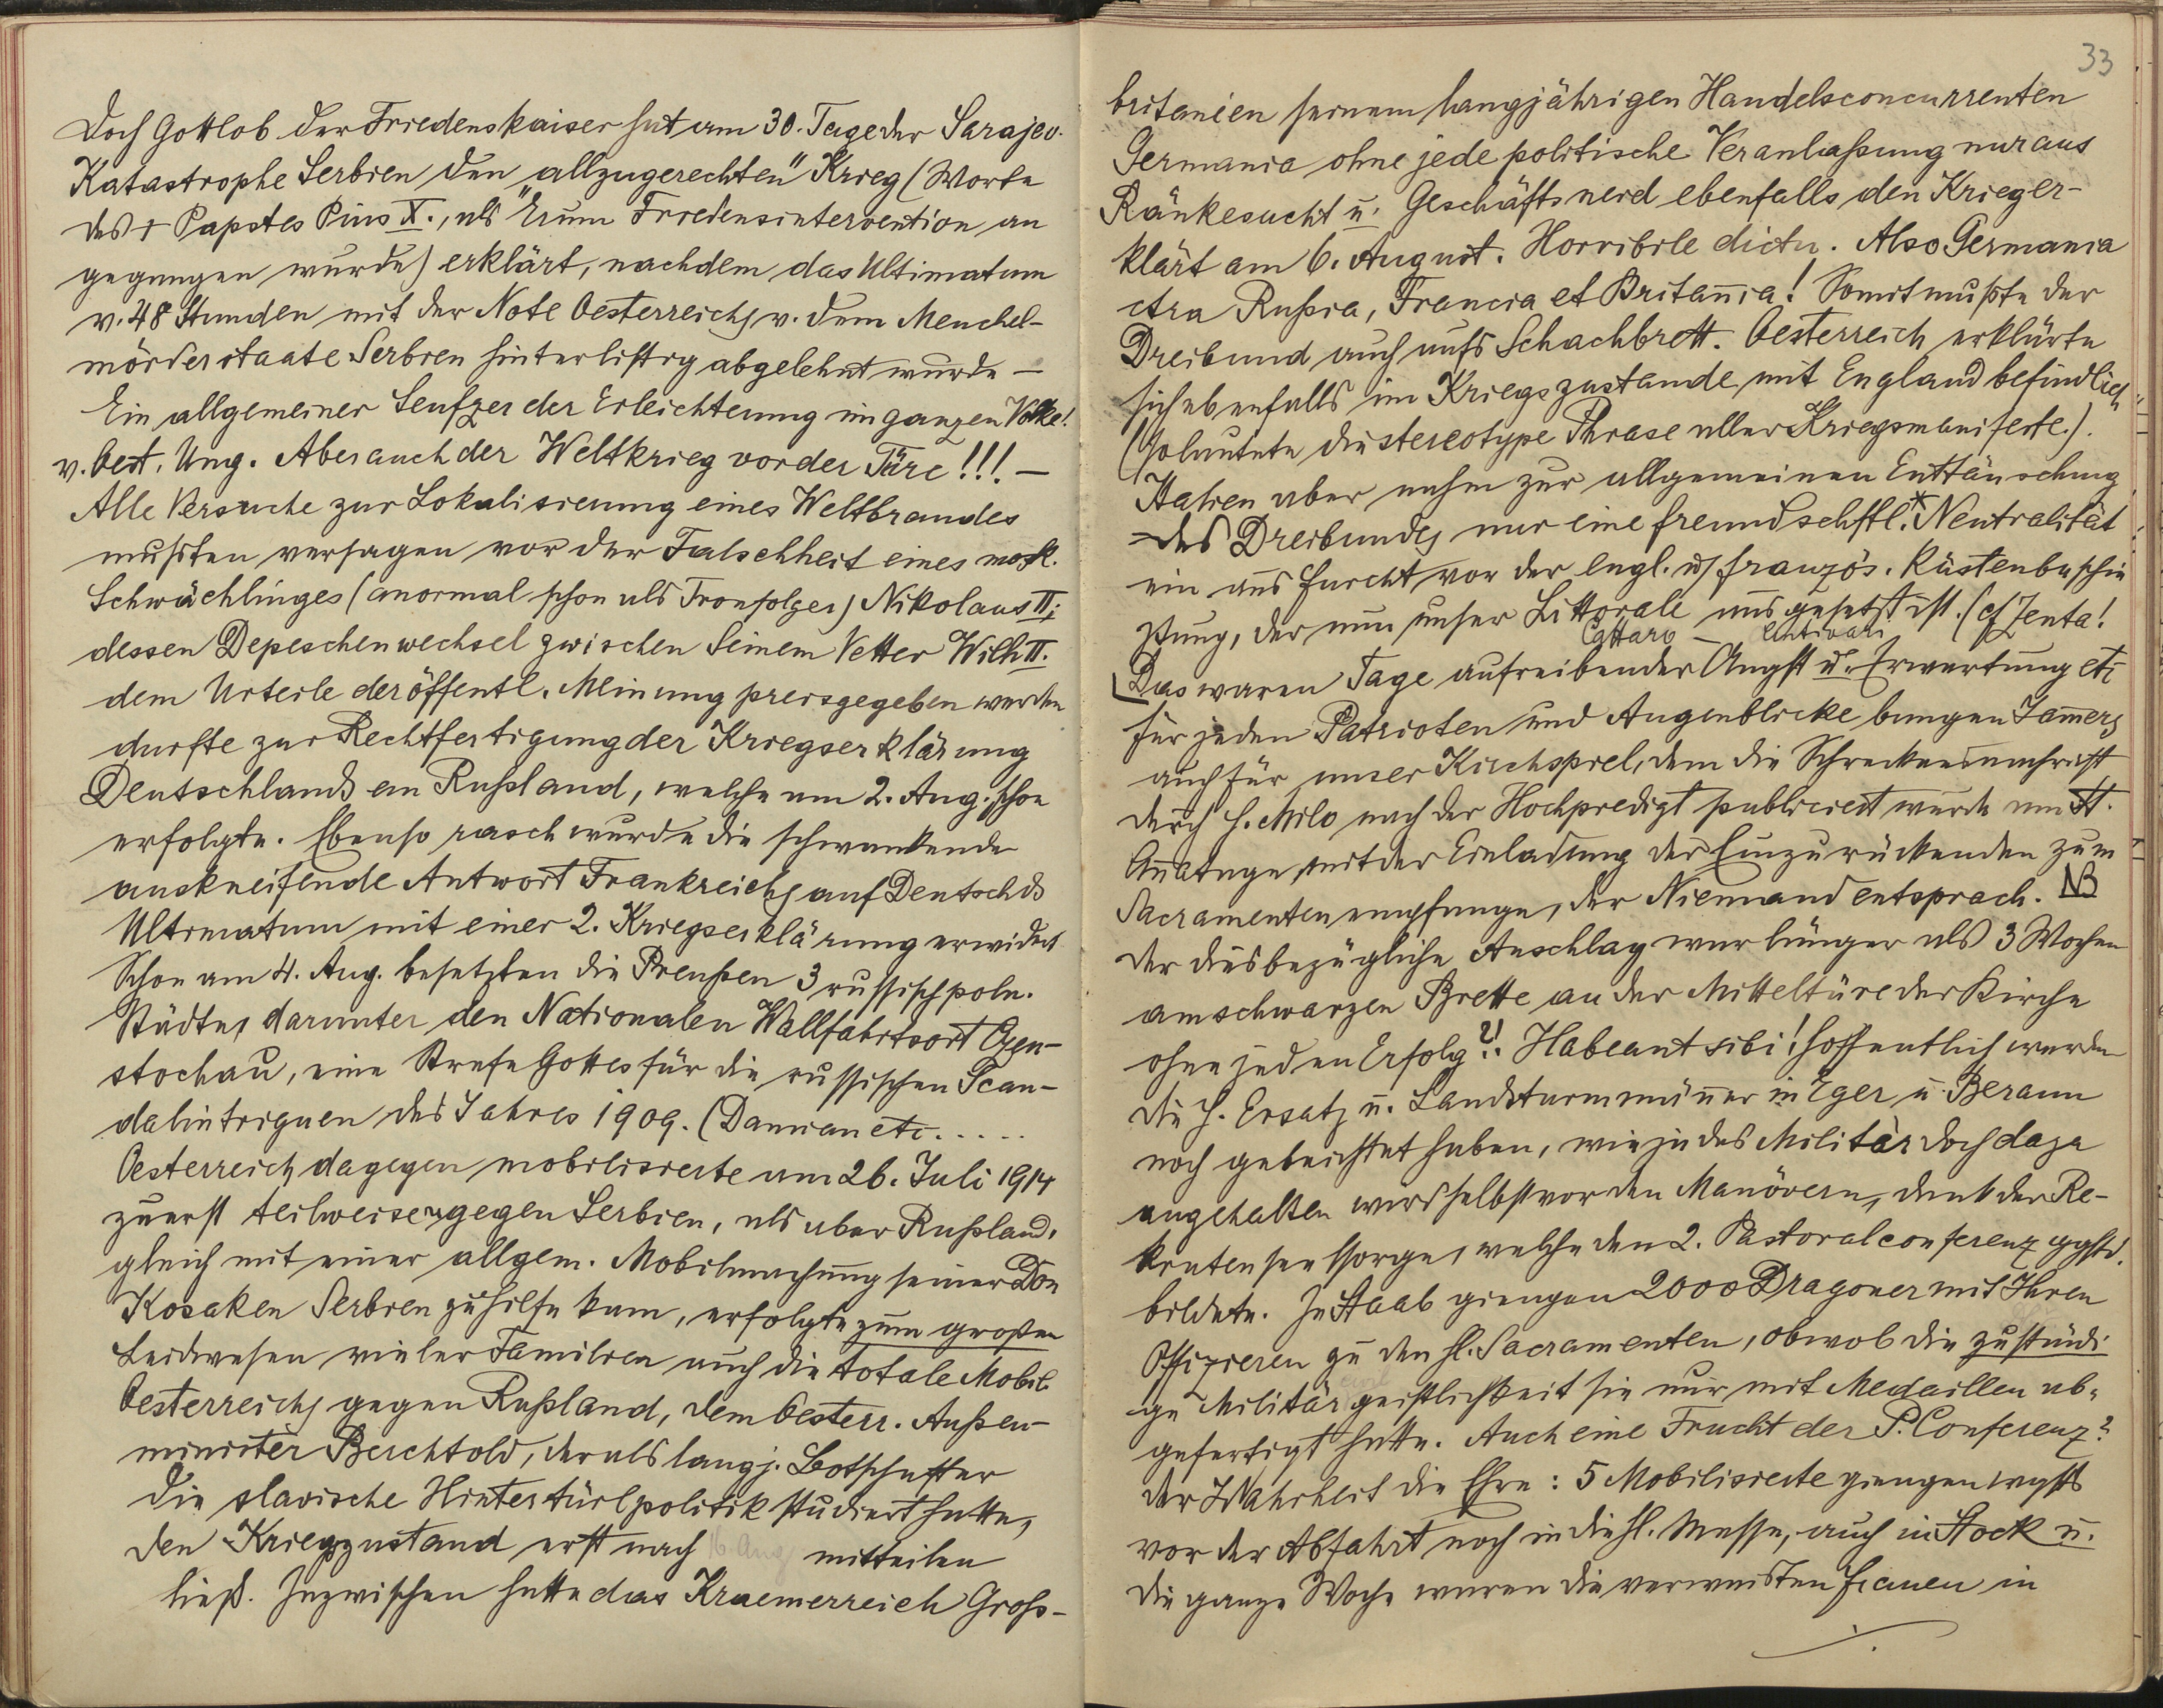 Doch Gottlob der Friedenskaiser hat am 30. Tage der Sarajev.
Katastrophe Serbien den „allzugerechten" Krieg (Worte
des + Papstes Pius X., als Er um Friedensintervention an
gegangen wurde) erklärt, nachdem das Ultimatum
v. 48 Stunden mit der Note Oesterreichs v. dem Meuchel-
mörderstaate Serbien hinterlistig abgelehnt wurde –
Ein allgemeiner Seufzer der Erleichterung im ganzen Volke!
v. Oest. Ung. Aber auch der Weltkrieg vor der Türe!!! –
Alle Versuche zur Lokalisierung eines Weltbrandes
mußten versagen vor der Falschheit eines mosk.
Schwächlinges (anormal schon als Tronfolger) Nikolaus II;
dessen Depeschenwechsel zwischen Seinem Vetter Wilh II.
dem Urteile der öffentl. Meinung preisgegeben werden
durfte zur Rechtfertigung der Kriegserklärung
Deutschlands an Rußland, welche am 2. Aug. schon
erfolgte. Ebenso rasch wurde die schwankende
auskneifende Antwort Frankreichs auf Deutschds
Ultimatum mit einer 2. Kriegserklärung erwidert
Schon am 4. Aug. besetzten die Preußen 3 russischpoln.
Städte, darunter den Nationalen Wallfahrtsort Czen-
stochau, eine Strafe Gottes für die russischen Scan-
dalintriguen des Jahres 1909. (Damian etc.....
Oesterreich dagegen mobilisierte am 26. Juli 1914
zuerst teilweise gegen Serbien, als aber Rußland,
gleich mit einer allgem. Mobilmachung seiner Don
Kosaken Serbien zuhilfe kam, erfolgte zum großen
Leidwesen vieler Familien auch die totale Mobil.
Oesterreichs gegen Rußland, dem Oesterr. Außen-
minister Berchtold, der als langj. Botschafter
die slavische Hintertürlpolitik studiert hatte,
den Kriegszustand erst nach 6. Aug mitteilen
ließ. Inzwischen hatte das Kraemerreich Gross-
33
britanien seinem langjährigen Handelsconcurrenten
Germania ohne jede politische Veranlaßung nur aus
Ränkesucht u. Geschäftsneid ebenfalls den Krieg er-
klärt am 6. August. Horribile dictu. Also Germania
ctra Rußia, Francia et Britannia! Somit mußte der
Dreibund auch aufs Schachbrett. Oesterreich erklärte
sich ebenfalls im Kriegszustande mit England befindlich"
(So lautete die stereotype Phrase aller Kriegsmanifeste.).
Italien aber nahm zur allgemeinen Enttäuschung
des Dreibundes nur eine freundschftl.* Neutralität
ein aus Furcht vor der engl. u französ. Küstenbeschie
ßung, der nun unser Littorale ausgesetzt ist. (cf Zenta!
Cattaro – Antivari
Das waren Tage aufreibender Angst u. Erwartung etc
für jeden Patrioten und Augenblicke bangen Jamers
auch für unser Kirchspiel, dem die Schreckensnachricht
durch H. Milo nach der Hochpredigt publiciert wurde am St.
Annatage mit der Einladung der Einzurückenden zum
Sacramentenempfange, der Niemand entsprach. NB
Der diesbezügliche Anschlag war länger als 3 Wochen
am schwarzen Brette an der Mitteltüre der Kirche
ohne jeden Erfolg?! Habeant sibi! Hoffentlich werden
die H. Ersatz u. Landsturmmänner in Eger u Beraun
noch gebeichtet haben, wie ja das Militär doch dazu
angehalten wird selbst vor den Manövern, dank der Re-
krutenseelsorge, welche den 2. Pastoralconferenz ggstd.
bildete. In Staab giengen 2000 Dragoner mit Ihren
Offizieren zu den hl. Sacramenten, obwol die zuständi
ge Militärgeistlichkeit sie nur mit Medaillen ab-
gefertigt hatte. Auch eine Frucht der P. Conferenz?
Der Wahrheit die Ehre: 5 Mobilisierte giengen wgsts
vor der Abfahrt noch in die hl. Messe, auch in Stock u.
die ganze Woche waren die verwaisten Frauen in
./.